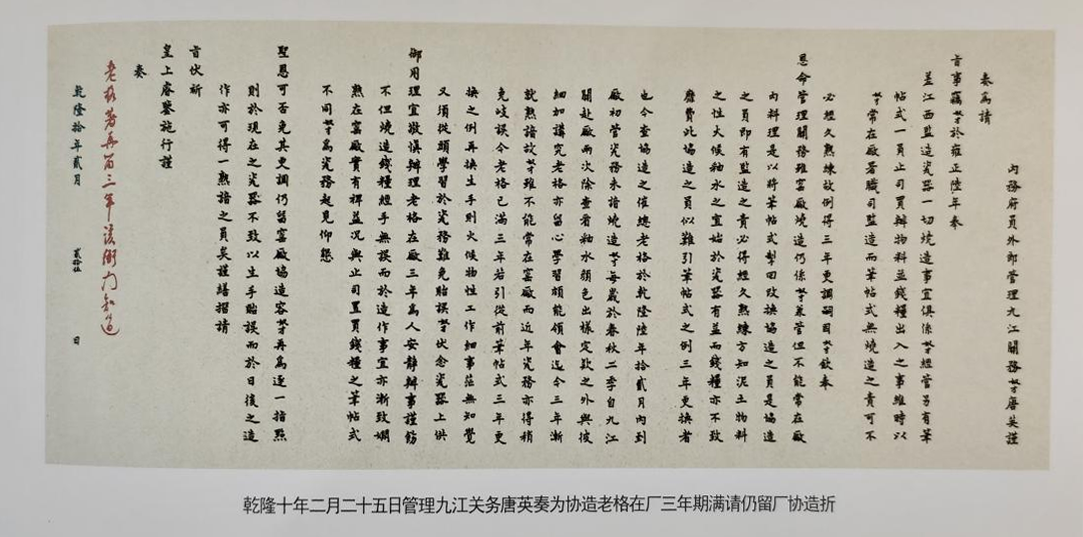 內務府員外郎管理九江關務奴才唐英謹
奏為請
旨事竊奴才於雍正陸年奉
差江西監造瓷器一切燒造事宜俱係奴才經管另有筆
帖式一員止司買辦物料並錢糧出入之事維時以
奴才常在廠署職司監造而筆帖式無燒造之責可不
必經久熟練故例得三年更調嗣因奴才欽奉
恩命管理關務雖窰廠燒造仍係奴才兼管但不能常在廠
內料理是以將筆帖式掣回改換協造之員是協造
之員即有監造之責必得經久熟練方知泥土物料
之性火候釉水之宜始於瓷器有益而錢糧亦不致
靡費此協造之員似難引筆帖式之例三年更換者
也今查協造之催總老格於乾隆陸年拾貳月內到
廠初管瓷務未諳燒造奴才每歲於春秋二季自九江
關赴廠兩次除查看釉水顏色出樣定款之外與彼
細加講究老格亦留心學習頗能領會迄今三年漸
就熟諳故奴才雖不能常在窰廠而近年瓷務亦得稍
免歧誤今老格已滿三年若引從前筆帖式三年更
換之例再換生手則火候物性工作細事茫無知覺
又須從頭學習於瓷務難免貽誤奴才伏念瓷器上供
御用理宜敬慎辦理老格在廠三年為人安靜辦事謹飭
不但燒造錢糧經手無誤而於造作事宜亦漸致嫻
熟在窰廠實有裨益況與止司置買錢糧之筆帖式
不同奴才為瓷務起見仰懇
聖恩可否免其更調仍留窰廠協造容奴才再為逐一指點
則於現在之瓷器不致以生手貽誤而於日後之造
作亦可得一熟諳之員矣謹繕摺請
旨伏祈
皇上睿鑒施行謹
奏
老格著再留三年該衙門知道
乾隆拾年貳月 貳拾伍 日
乾隆十年二月二十五日管理九江关务唐英奏为协造老格在厂三年期满请仍留厂协造折